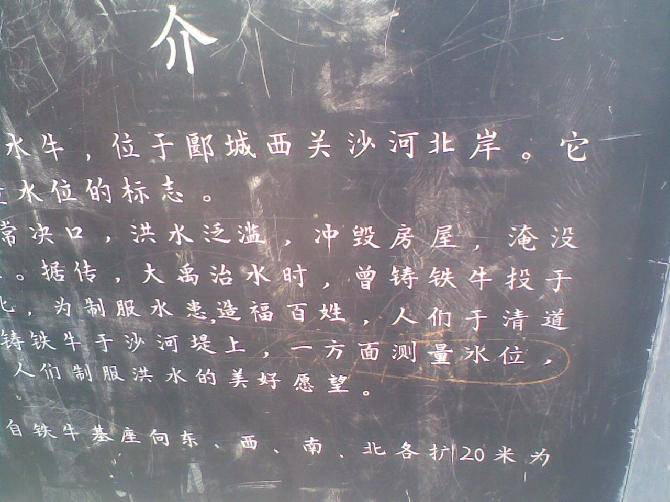 介
水牛，位于郾城西关沙河北岸。它
水位的标志。
常决口，洪水泛滥，冲毁房屋，淹没
。据传，大禹治水时，曾铸铁牛投于
，为制服水患,造福百姓，人们于清道
铸铁牛于沙河堤上，一方面测量水位，
人们制服洪水的美好愿望。
自铁牛基座向东、西、南、北各扩20米为